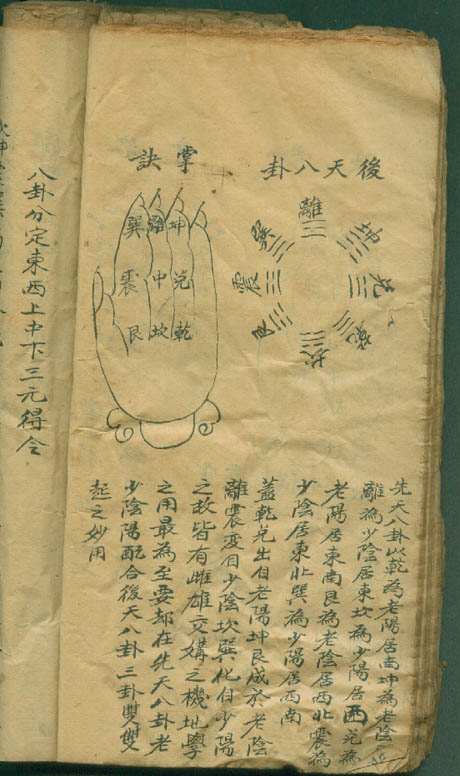 後天八卦
離
坤
兌
乾
坎
艮
震
巽
掌訣
坤兌乾
離中坎
巽震艮
先天八卦以乾為老陽居南坤為老陰
離為少陰居東坎為少陽居西兌為
老陽居東南艮為老陰居西北震為
少陰居東北巽為少陽居西南
蓋乾兌出自老陽坤艮成於老陰
離震变自少陰坎巽化自少陽
之故皆有雌雄交媾之機地學
之用最為至要却在先天八卦老
少陰陽配合後天八卦三卦雙雙
起之妙用
八卦分定東西上中下三元得令